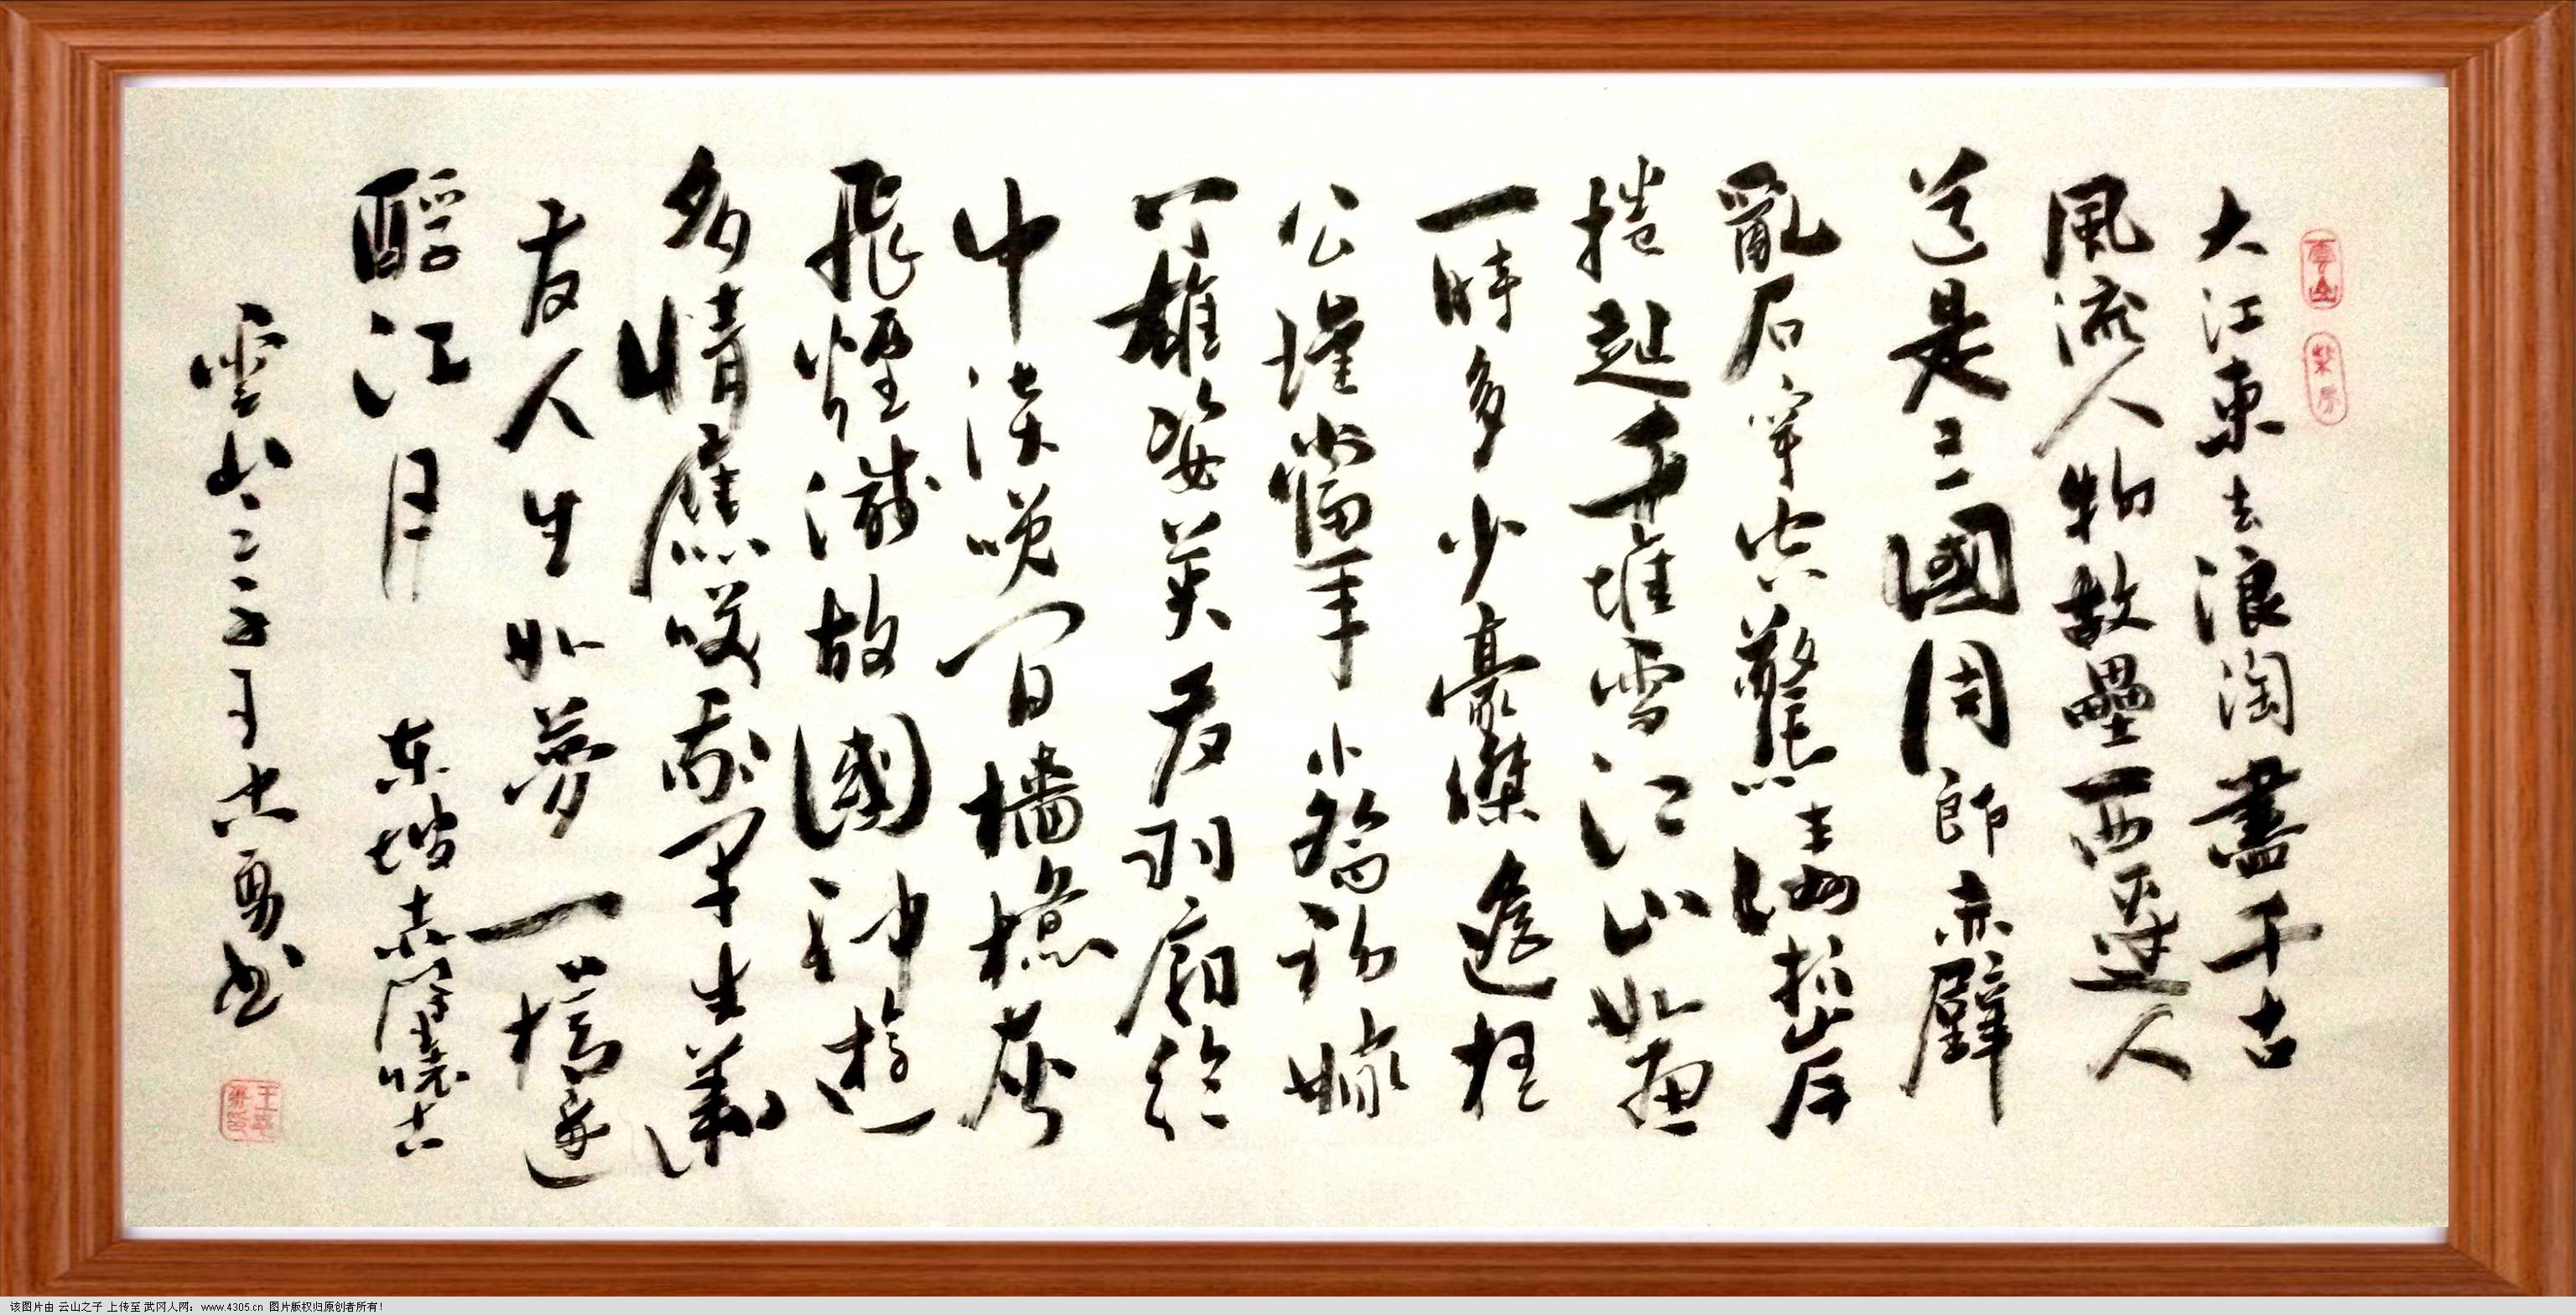 大江東去浪淘盡千古
風流人物故壘西邊人
道是三國周郎赤壁
亂石穿空驚濤拍岸
捲起千堆雪江山如畫
一時多少豪傑遙想
公瑾當年小喬初嫁
了雄姿英發羽扇綸
巾談笑間檣櫓灰
飛煙滅故國神遊
多情應笑我早生華
髮人生如夢一樽還
酹江月 东坡赤壁懷古
雲山之子王
書
雲山
该图片由 云山之子 上传至 武冈人网：www.4305.cn 图片版权归原创者所有!